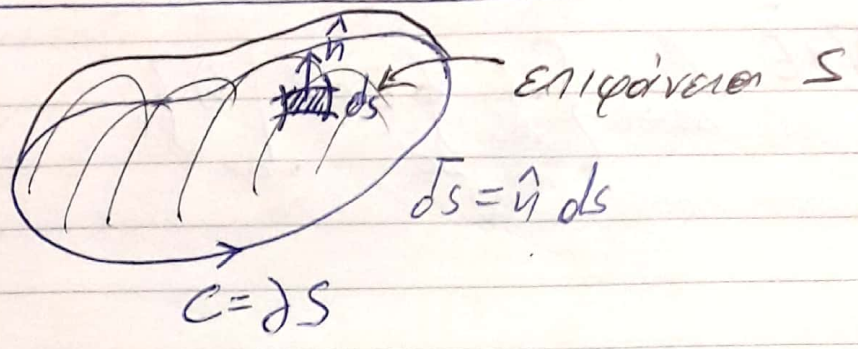 n̂
ds
επιφάνεια S
d̄s = n̂ ds
C = ∂S